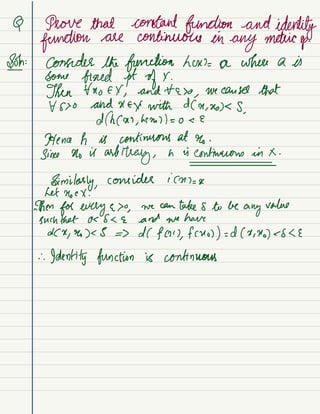 Q Prove that constant function and identity
function are continuous in any metric sp
Soln: Consider the function h(x) = a where a is
some fixed pt of Y.
Then ∀x₀ ∈ Y, and ∀ε>0, we can see that
∀ δ>0 and x∈Y with d(x, x₀) < δ,
d(h(x), h(x₀)) = 0 < ε
Hence h is continuous at x₀.
Since x₀ is arbitrary, h is continuous in X.
Similarly, consider i(x) = x
Let x₀ ∈ X.
Then for every ε>0, we can take δ to be any value
such that 0<δ<ε and we have
d(x, x₀) < δ => d( f(x), f(x₀)) = d(x, x₀) < δ < ε
∴ Identity function is continuous